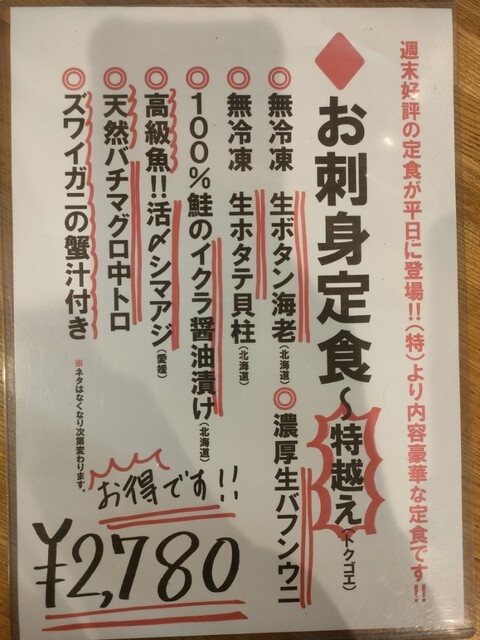 週末好評の定食が平日に登場!!(特)より内容豪華な定食です!!
◆お刺身定食～特越え(トクゴエ)
◎無冷凍 生ボタン海老(北海道)◎濃厚生バフンウニ
◎無冷凍 生ホタテ貝柱(北海道)
◎100%鮭のイクラ醤油漬け(北海道)
◎高級魚!!活〆シマアジ(愛媛)
◎天然バチマグロ中トロ
◎ズワイガニの蟹汁付き
※ネタはなくなり次第変わります。
お得です!!
¥2,780